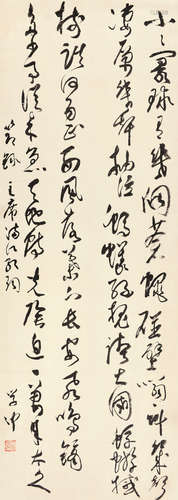 小々寰球有幾個蒼蠅碰壁嗡々叫幾聲
凄厲幾聲抽泣螞蟻緣槐誇大國蚍蜉撼
樹談何易正西風落葉下長安飛鳴鏑
多少事從來急天地轉光陰迫一萬年太久
節錄
主席滿江紅詞
學仲